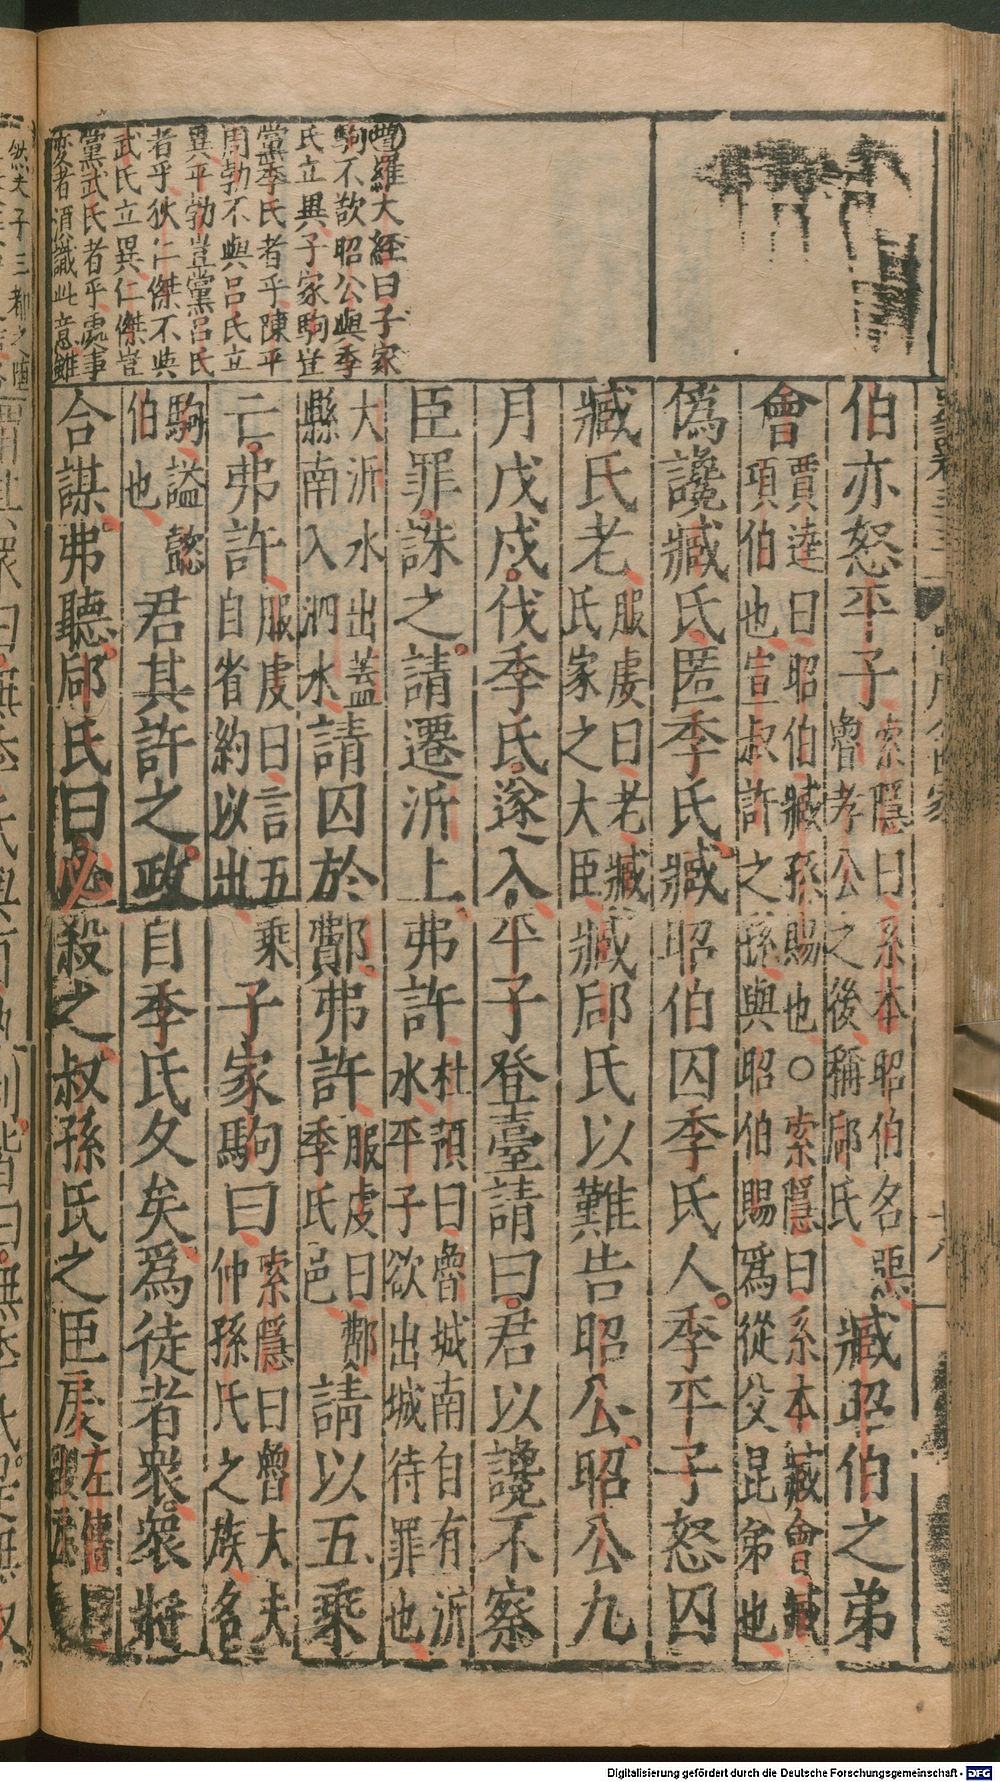 伯亦怒平子索隱曰系本昭伯名惡魯孝公之後稱郈氏臧昭伯之弟
會賈逵曰昭伯臧孫賜也○索隱曰系本臧會臧項伯也宣叔許之孫與昭伯賜爲從父昆弟也
僞讒臧氏匿季氏臧昭伯囚季氏人季平子怒囚
臧氏老服虔曰老臧氏家之大臣臧郈氏以難告昭公昭公九
月戊戌伐季氏遂入平子登臺請曰君以讒不察
臣罪誅之請遷沂上弗許杜預曰魯城南自有沂水平子欲出城待罪也
大沂水出蓋縣南入泗水請囚於鄪弗許服虔曰鄪季氏邑請以五乘
亡弗許服虔曰言五乘自省約以出子家駒曰索隱曰魯大夫仲孫氏之族名
駒謚懿伯也君其許之政自季氏久矣爲徒者衆衆將
合謀弗聽郈氏曰必殺之叔孫氏之臣戾左傳曰鬷戾
羅大經曰子家
駒不敢昭公與季
氏立異子家駒豈
黨季氏者乎陳平
周勃不與呂氏立
異平勃豈黨呂氏
者乎狄仁傑不與
武氏立異仁傑豈
黨武氏者乎處事
変者須識此意雖
Digitalisierung gefördert durch die Deutsche Forschungsgemeinschaft - DFG